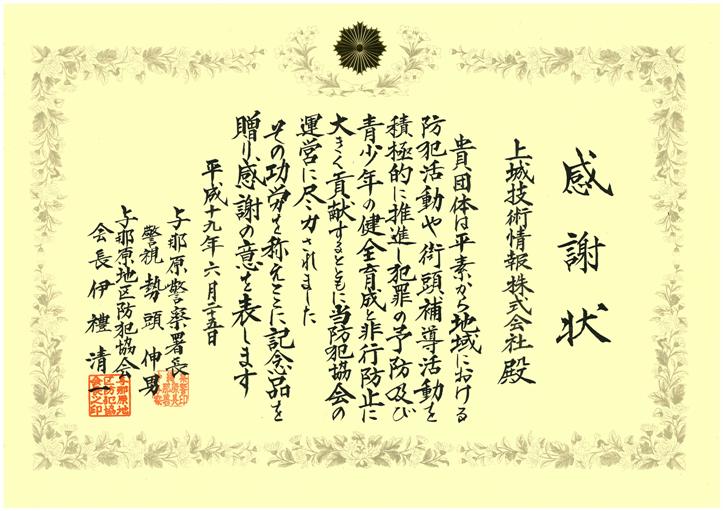 感謝状
上城技術情報株式会社殿
貴団体は平素から地域における
防犯活動や街頭補導活動を
積極的に推進し犯罪の予防及び
青少年の健全育成と非行防止に
大きく貢献するとともに当防犯協会の
運営に尽力されました
その功労を称えここに記念品を
贈り感謝の意を表します
平成十九年六月二十五日
与那原警察署長
警視勢頭伸男
与那原地区防犯協会
会長伊禮清一
与那原地
区防犯協
会長之印